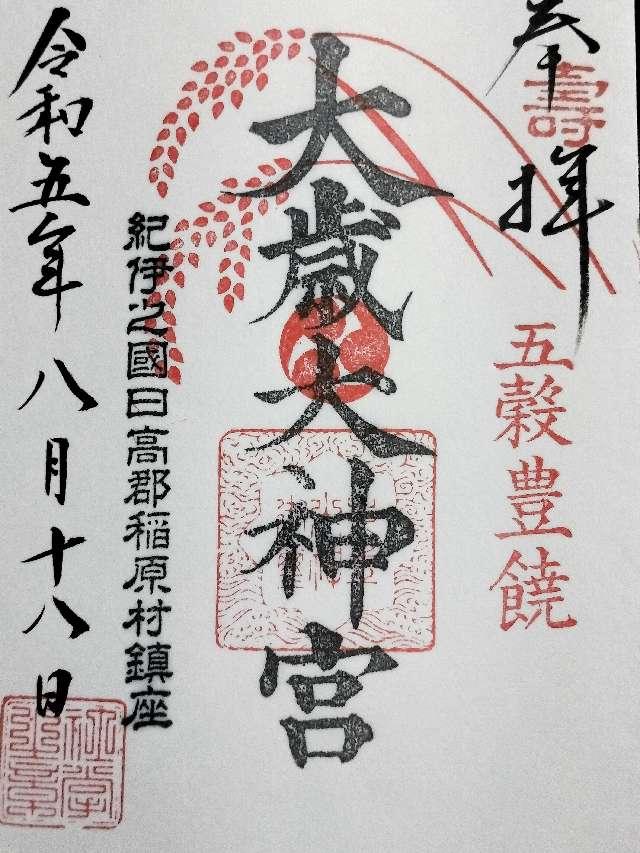 奉拝
壽
五穀豊饒
大歳大神宮
紀伊之國日高郡稲原村鎮座
令和五年八月十八日